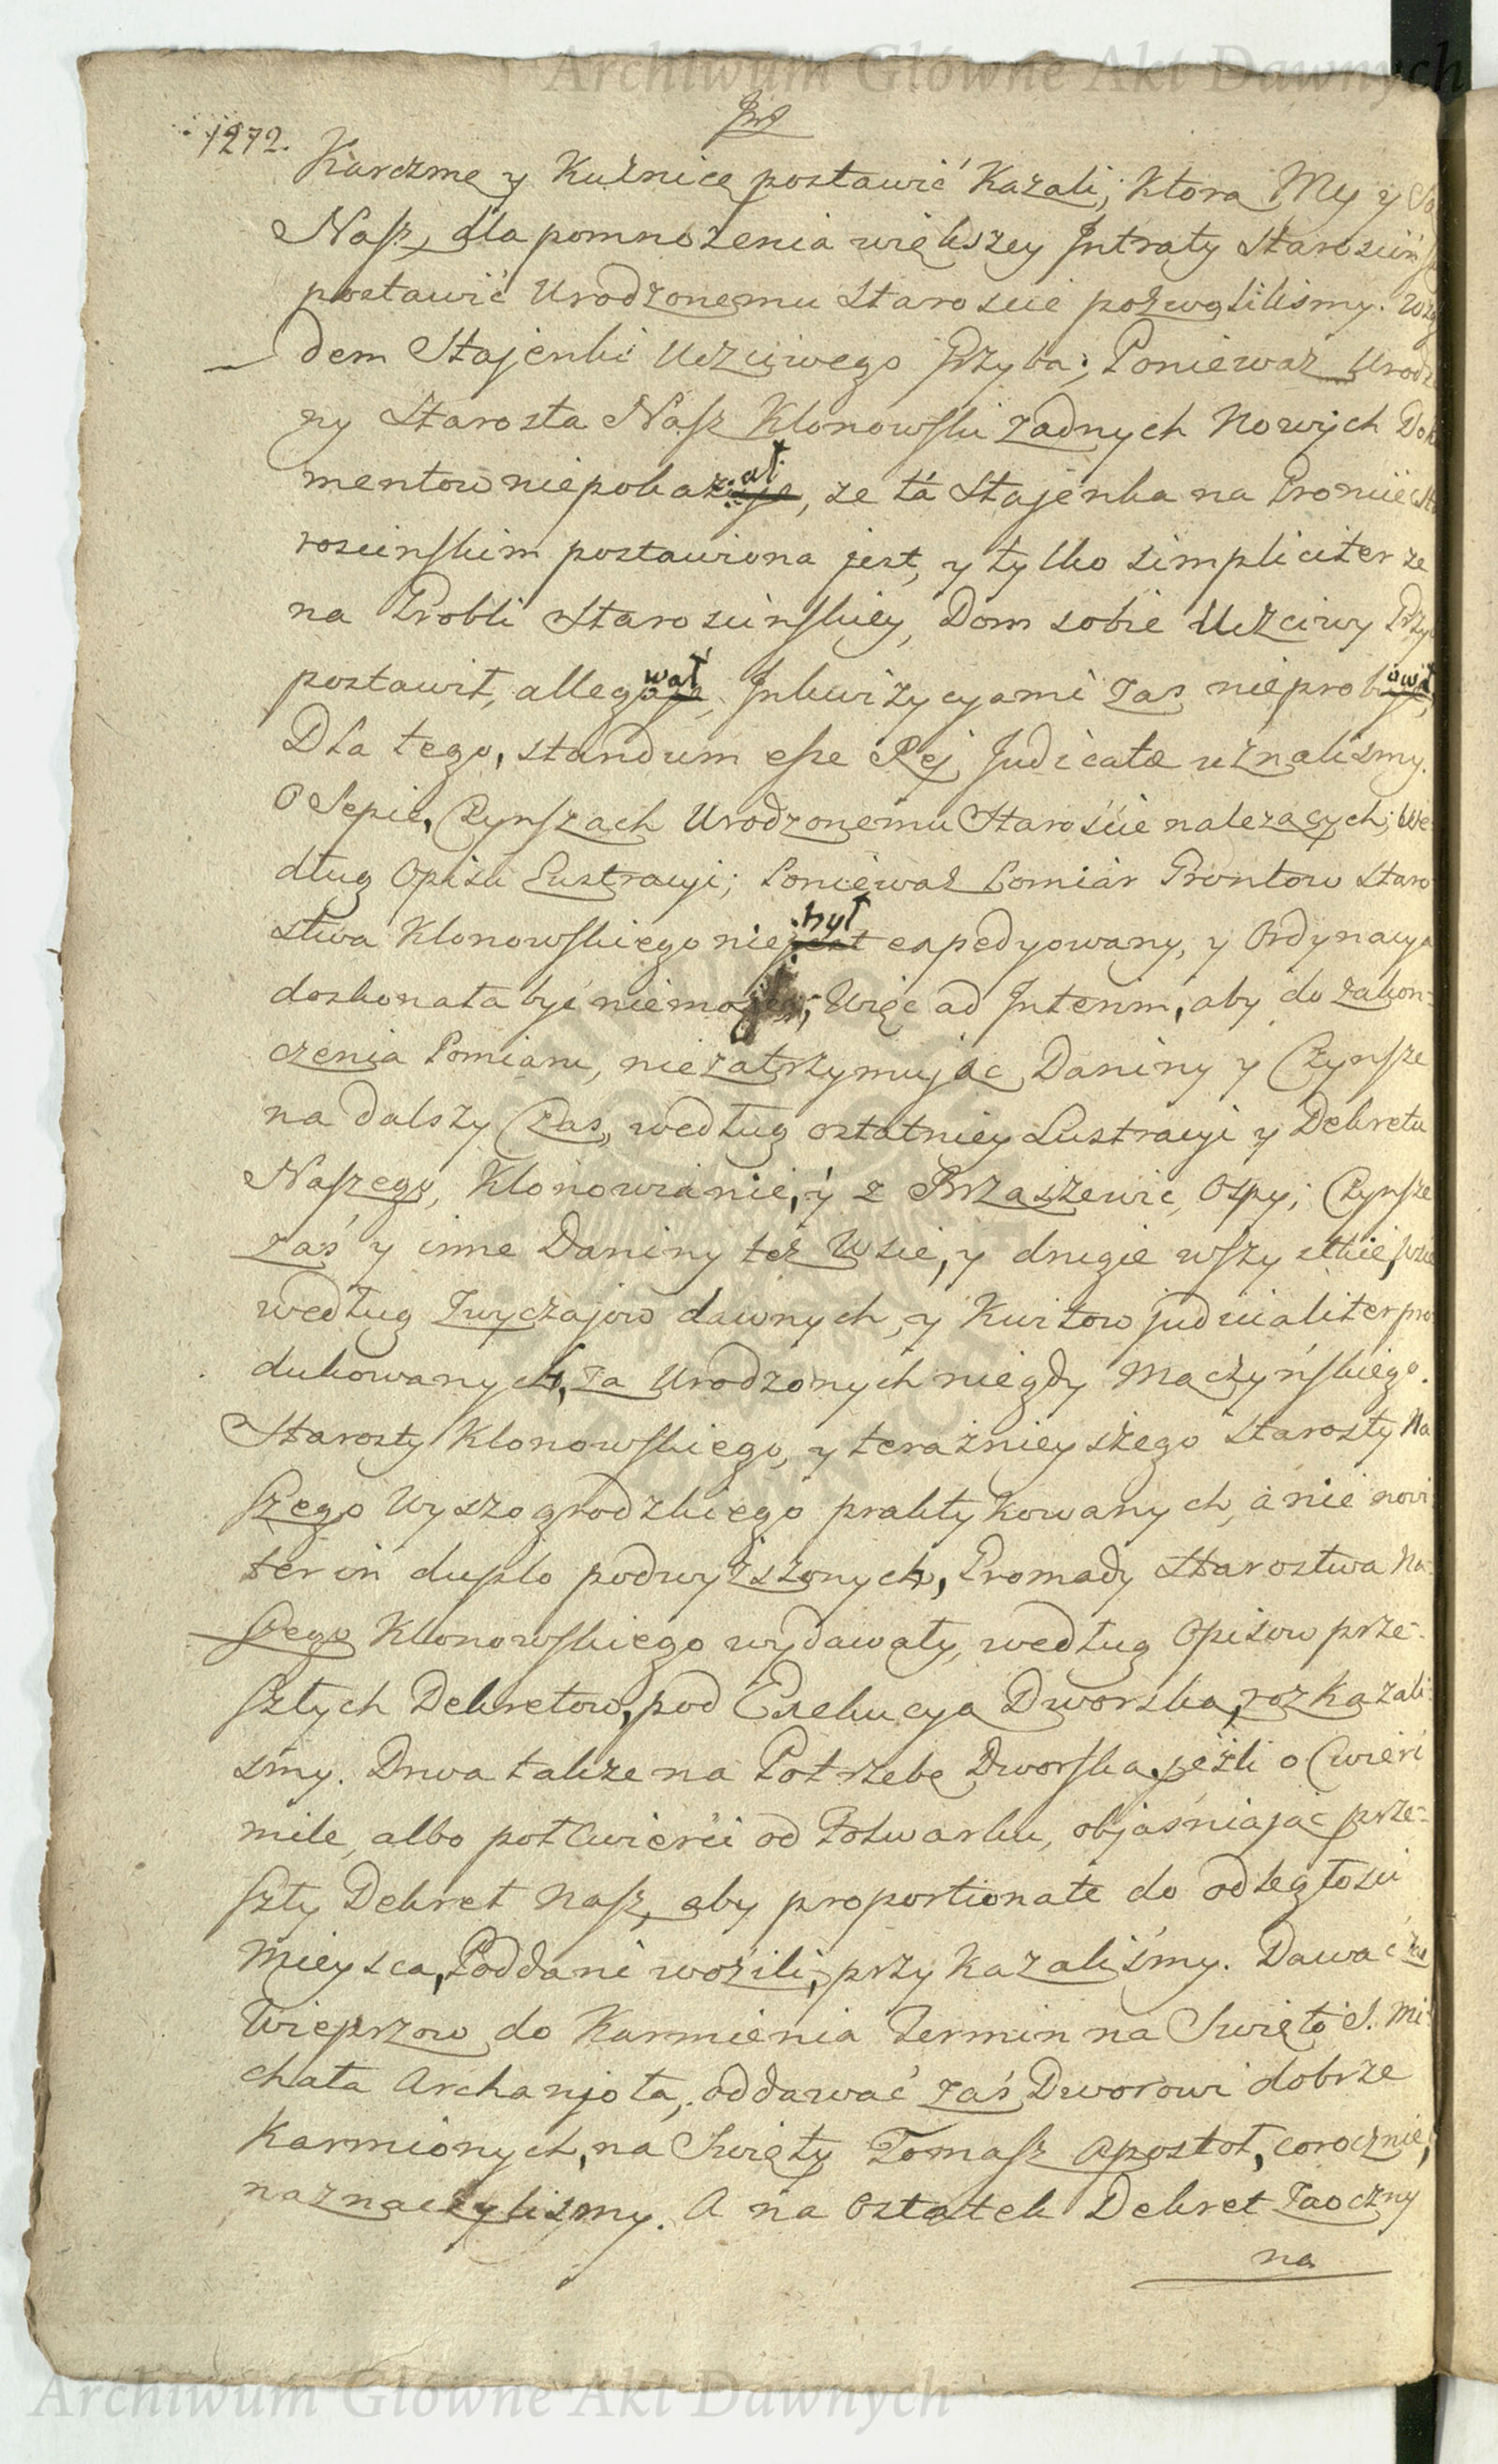 Archiwum Główne Akt Dawnych
1272.
Karczmę y Kuźnicę postawić Kazali; ktorą My y Są
Nasz, dla pomnozenia większey Intraty Starosciń
postawić Urodzonemu Staroscie pozwolilismy. Wzglę
dem Stajenki Uczciwego Przyba; Ponieważ Urodzo
ny Starosta Nasz Klonowski zadnych Nowych Doku
mentow niepokazał, ze ta Stajenka na Groncie Sta
roscinskim postawiona jest, y tylko simpliciter ze
na Grobli Staroscinskiey, Dom sobie Uczciwy Przy
postawił, allegował, Inkwizycyami zas nieprobował,
Dla tego, standum esse Rej Judicatæ uznalismy.
O Sepie, Czynszach Urodzonemu Staroście nalezących; We-
dług Opisu Lustracyi; Ponieważ Pomiar Grontow Staro
stwa Klonowskiego nie był expedyowany, y Ordynacya
doskonała być niemoże; Więc ad Interim, aby do zakon-
czenia Pomiaru, niezatrzymując Daniny y Czynsze
na dalszy Czas, według ostatniey Lustracyi y Dekretu
Naszego, Klonowianie, y z Brzaszewic, Ospy; Czynsze
zaś y inne Daniny też Wsie, y drugie wszystkie,
według Zwyczajow dawnych, y Kwitow judicialiter pro
dukowanych, za Urodzonych niegdy Mączyńskiego.
Starosty Klonowskiego, y teraznieyszego Starosty Na
szego Wyszogrodzkiego praktykowanych, a nie novi
ter in duplo podwyższonych, Gromady Starostwa Na-
szego Klonowskiego wydawały, według Opisow prze-
szłych Dekretow, pod Exekucyą Dworską, rozkazali-
śmy. Drwa także na Potrzebę Dworską, jeżli o Cwierć
mile, albo poł Cwierci od Folwarku, objaśniając prze-
szły Dekret Nasz, aby proportionate do odległosci
Mieysca, Poddani wozili, przykazaliśmy. Dawać zas
Wieprzow do Karmienia Termin na Swięto S. Mi-
chała Archanjoła, oddawać zaś Dworowi dobrze
Karmionych, na Swięty Tomasz Apostoł, corocznie,
naznaczylismy. A na Ostatek Dekret Zaoczny
na
Archiwum Główne Akt Dawnych